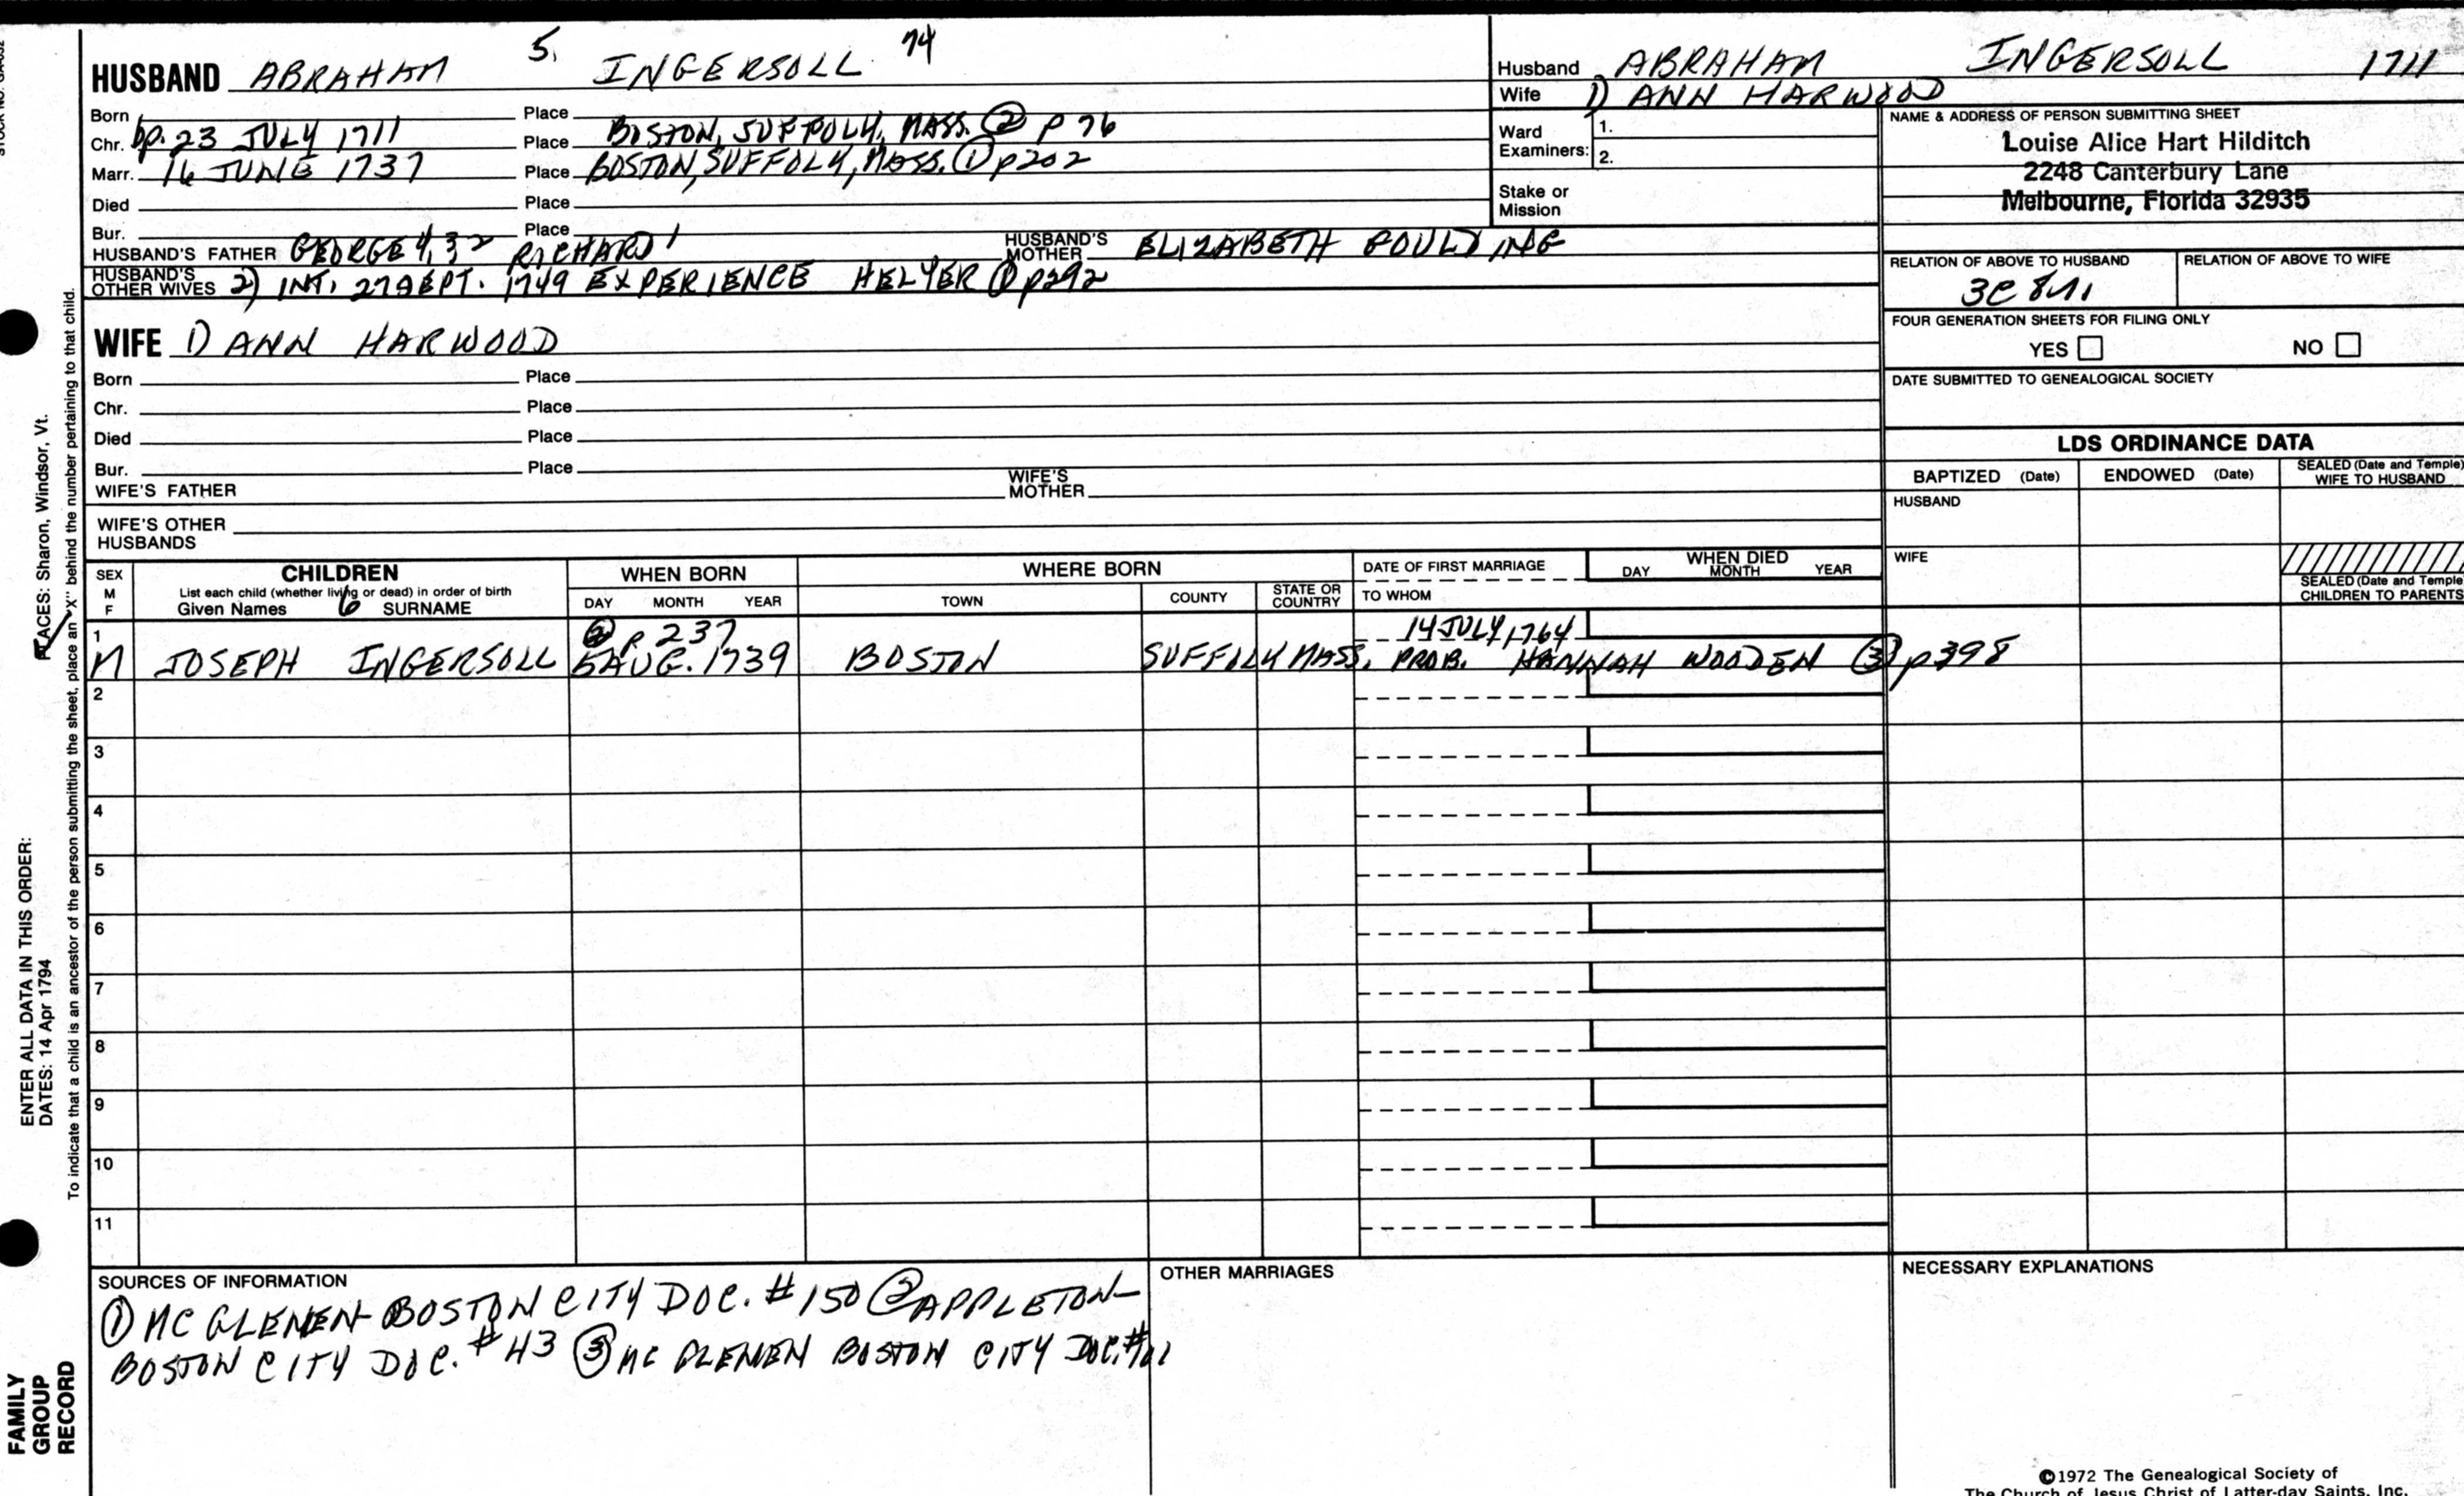 HUSBAND ABRAHAM 5. INGERSOLL 74
Born Place
Chr. bp. 23 JULY 1711 Place BOSTON, SUFFOLK, MASS. ② p 76
Marr. 16 JUNE 1737 Place BOSTON, SUFFOLK, MASS. ① p202
Died Place
Bur. Place
HUSBAND'S FATHER GEORGE 4,3,2 RICHARD 1 HUSBAND'S MOTHER ELIZABETH
HUSBAND'S OTHER WIVES 2) INT. 27 SEPT. 1749 EXPERIENCE HELYER ① p292
WIFE 1) ANN HARWOOD
Born Place
Chr. Place
Died Place
Bur. Place
WIFE'S FATHER WIFE'S MOTHER
WIFE'S OTHER HUSBANDS
Husband ABRAHAM INGERSOLL 1711
Wife 1) ANN HARWOOD
Ward Examiners: 1.
2.
Stake or Mission
NAME & ADDRESS OF PERSON SUBMITTING SHEET
Louise Alice Hart Hilditch
2248 Canterbury Lane
Melbourne, Florida 32935
RELATION OF ABOVE TO HUSBAND RELATION OF ABOVE TO WIFE
3C
FOUR GENERATION SHEETS FOR FILING ONLY
YES NO
DATE SUBMITTED TO GENEALOGICAL SOCIETY
LDS ORDINANCE DATA
BAPTIZED (Date) ENDOWED (Date) SEALED (Date and Temple) WIFE TO HUSBAND
HUSBAND
WIFE
SEALED (Date and Temple
CHILDREN TO PARENTS
SEX M F CHILDREN WHEN BORN WHERE BORN DATE OF FIRST MARRIAGE WHEN DIED
List each child (whether living or dead) in order of birth
Given Names 6 SURNAME DAY MONTH YEAR TOWN COUNTY STATE OR COUNTRY TO WHOM DAY MONTH YEAR
1 ② p 237 14 JULY, 1764
M JOSEPH INGERSOLL 5 AUG. 1739 BOSTON SUFFOLK MASS. PROB. HANNAH WOODEN ③ p398
2
3
4
5
6
7
8
9
10
11
SOURCES OF INFORMATION
① MC GLENEN-BOSTON CITY DOC. #150 ② APPLETON-
BOSTON CITY DOC. #43 ③ MC GLENEN BOSTON CITY DOC. #
OTHER MARRIAGES
NECESSARY EXPLANATIONS
©1972 The Genealogical Society of
The Church of Jesus Christ of Latter-day Saints, Inc.
ENTER ALL DATA IN THIS ORDER:
DATES: 14 Apr 1794
PLACES: Sharon, Windsor, Vt.
To indicate that a child is an ancestor of the person submitting the sheet, place an "X" behind the number pertaining to that child.
FAMILY
GROUP
RECORD